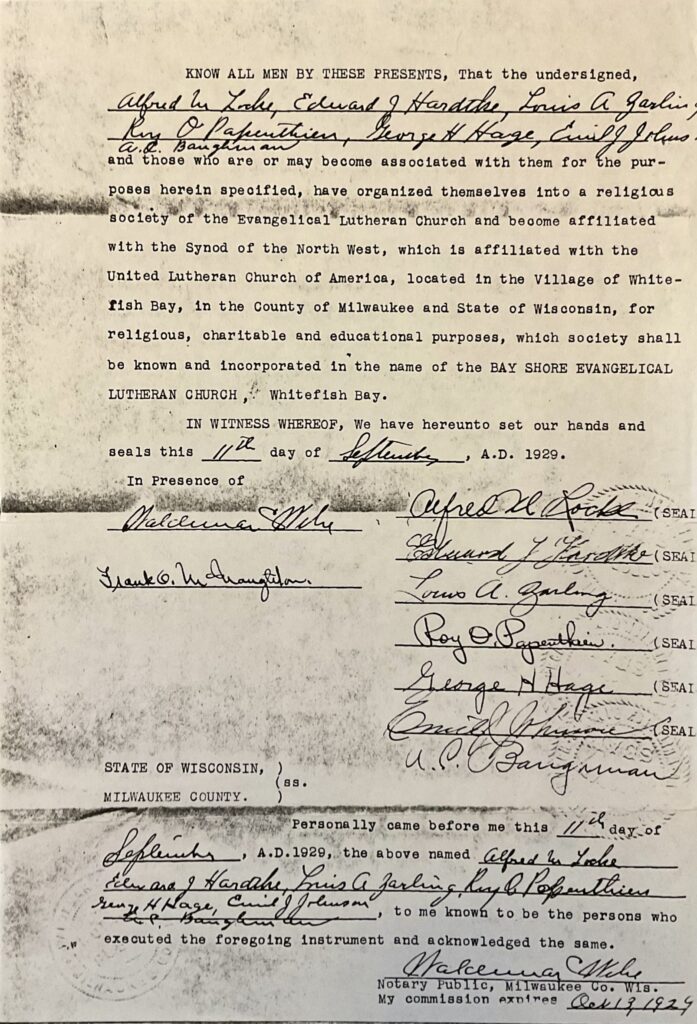 KNOW ALL MEN BY THESE PRESENTS, That the undersigned,
Alfred M Locke, Edward J Hardtke, Louis A Zarling,
Roy O Papenthien, George H Hage, Emil J Johns
A.C. Baughman
and those who are or may become associated with them for the pur-
poses herein specified, have organized themselves into a religious
society of the Evangelical Lutheran Church and become affiliated
with the Synod of the North West, which is affiliated with the
United Lutheran Church of America, located in the Village of White-
fish Bay, in the County of Milwaukee and State of Wisconsin, for
religious, charitable and educational purposes, which society shall
be known and incorporated in the name of the BAY SHORE EVANGELICAL
LUTHERAN CHURCH, Whitefish Bay.
IN WITNESS WHEREOF, We have hereunto set our hands and
seals this 11th day of September, A.D. 1929.
In Presence of
Waldemar C Wehe
Frank O. McNaughton.
Alfred M Locke (SEAL
Edward J Hardtke (SEAL
Louis A. Zarling (SEAL
Roy O. Papenthien. (SEAL
George H Hage (SEAL
Emil J Johnson (SEAL
A. C. Baughman
STATE OF WISCONSIN, )
(ss.
MILWAUKEE COUNTY. )
Personally came before me this 11th day of
September, A.D.1929, the above named Alfred M Locke
Edward J Hardtke, Louis A Zarling, Roy O Papenthien
George H Hage, Emil J Johnson
A.C. Baughman, to me known to be the persons who
executed the foregoing instrument and acknowledged the same.
Waldemar C Wehe
Notary Public, Milwaukee Co. Wis.
My commission expires Oct 13, 1929